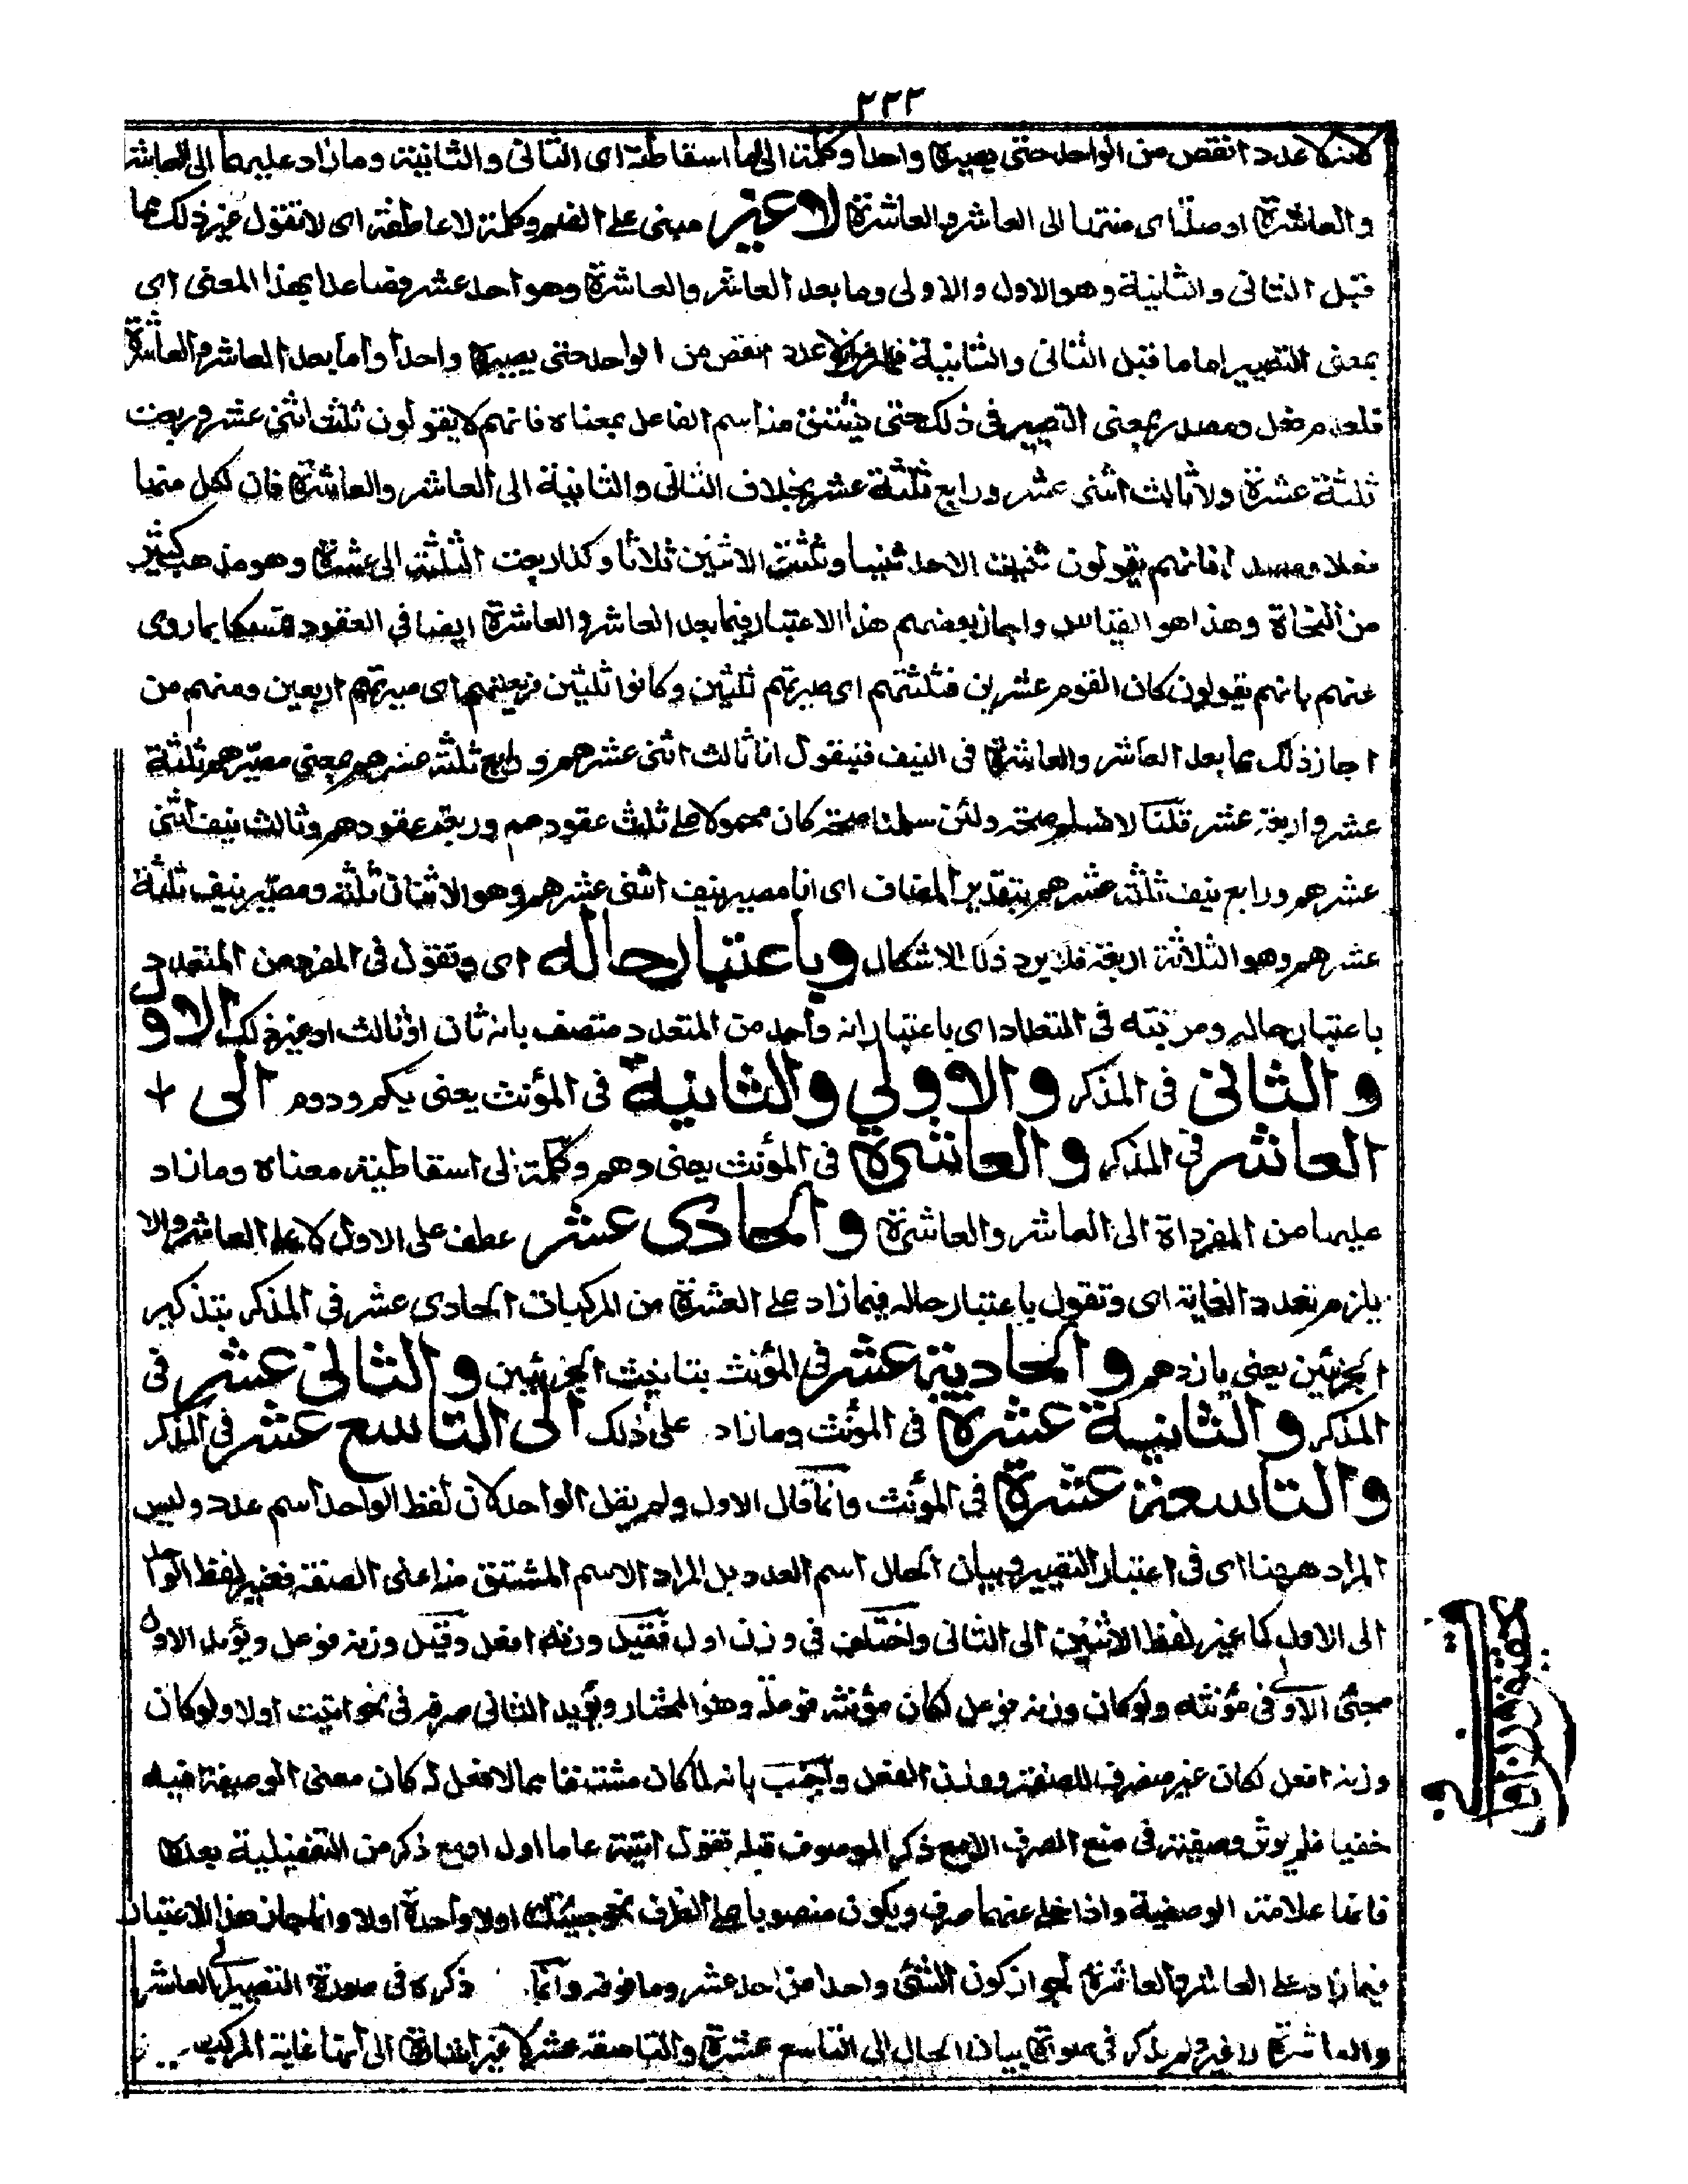 ٢٣٣
لانه لا عدد انقص من الواحد حتى يصيره واحدا وكلمة الى اما اسقاطية اى الثانى والثانية وما زاد عليهما الى العاشر
والعاشرة او صلة اى منتهيا الى العاشر والعاشرة لا غير مبنى على الضم وكلمة لا عاطفة اى لا تقول غير ذلك مما
قبل الثانى والثانية وهو الاول والاولى وما بعد العاشر والعاشرة وهو احد عشر فصاعدا بهذا المعنى اى
بمعنى التصيير اما ما قبل الثانى والثانية فلانه لا عدد انقص من الواحد حتى يصيره واحدا واما بعد العاشر والعاشرة
فلعدم فعل ومصدر بمعنى التصيير فى ذلك حتى يشتق منه اسم الفاعل بمعناه فانهم لا يقولون ثلثت اثنى عشر وربعت
ثلثة عشرة ولا ثالث اثنى عشر ورابع ثلثة عشر بخلاف الثانى والثانية الى العاشر والعاشرة فان لكل منهما
فعلا ومصدرا فانهم يقولون ثنيت الاحد ثنيا وثلثت الاثنين ثلاثا وكذا ربعت الثلثة الى عشرة وهو مذهب كثير
من النحاة وهذا هو القياس واجاز بعضهم هذا الاعتبار فيما بعد العاشر والعاشرة ايضا فى العقود متمسكا بما روى
عنهم بانهم يقولون كان القوم عشرين فثلثتهم اى صيرتهم ثلثين وكانوا ثلثين فربعتهم اى صيرتهم اربعين ومنهم من
اجاز ذلك مما بعد العاشر والعاشرة فى النيف فيقول انا ثالث اثنى عشرهم ورابع ثلثة عشرهم بمعنى مصيرهم ثلثة
عشر واربعة عشر قلنا لا نسلم صحته ولئن سلمنا صحته كان محمولا على ثلث عقودهم وربعت عقودهم وثالث نيف اثنى
عشرهم ورابع نيف ثلثة عشرهم بتقدير المضاف اى انا مصير نيف اثنى عشرهم وهو الاثنان ثلثة ومصير نيف ثلثة
عشرهم وهو الثلاثة اربعة فلا يرد ذلك الاشكال وباعتبار حاله اى وتقول فى المفرد من المتعدد
باعتبار حاله ومرتبته فى المتعدد اى باعتبار انه واحد من المتعدد متصف بانه ثان او ثالث او غير ذلك الاول
والثانى فى المذكر والاولى والثانية فى المؤنث يعنى يكم ودوم الى
العاشر فى المذكر والعاشرة فى المؤنث يعنى دهم وكلمة الى اسقاطية معناه وما زاد
عليهما من المفرداة الى العاشر والعاشرة والحادى عشر عطف على الاول لا على العاشر والا
يلزم تعدد الغاية اى وتقول باعتبار حاله فيما زاد على العشرة من المركبات الحادى عشر فى المذكر بتذكير
الجزئين يعنى يازدهم والحادية عشر فى المؤنث بتانيث الجزئين والثانى عشر فى
المذكر والثانية عشرة فى المؤنث وما زاد على ذلك الى التاسع عشر فى المذكر
والتاسعة عشرة فى المؤنث وانما قال الاول ولم يقل الواحد لان لفظ الواحد اسم عدد وليس
المراد ههنا اى فى اعتبار التصيير وبيان الحال اسم العدد بل المراد الاسم المشتق منه اعنى الصفة فغير لفظ الواحد
الى الاول كما غير لفظ الاثنين الى الثانى واختلف فى وزن اول فقيل وزنه افعل وقيل وزنه فوعل ويؤيد الاول
مجئ الاولى فى مؤنثه ولو كان وزنه فوعل لكان مؤنثه فوعلة وهذا المختار ويؤيد الثانى صرفه فى نحو اتيت اولا ولو كان
وزنه افعل لكان غير منصرف للصفة ووزن الفعل واجيب بانه لما كان مشتقا مما لا فعل له كان معنى الوصفية فيه
خفيا فلم يؤثر وصفيته فى منع الصرف الا مع ذكر الموصوف قبله تقول اتيته عاما اول او مع ذكر من التفضيلية بعده
فانها علامة الوصفية واذا خلى عنهما صرف ويكون منصوبا على الظرف نحو جيئتك اولا واحدة اولا وانما جاز هذا الاعتبار
فيما زاد على العاشر والعاشرة لجواز كون الشئ واحدا من احد عشر وما فوقه وانما ذكره فى صورة التصيير الى العاشر
والعاشرة لا غير ولم يذكر فى صورة بيان الحال الى التاسع عشرة والتاسعة عشر لا غير